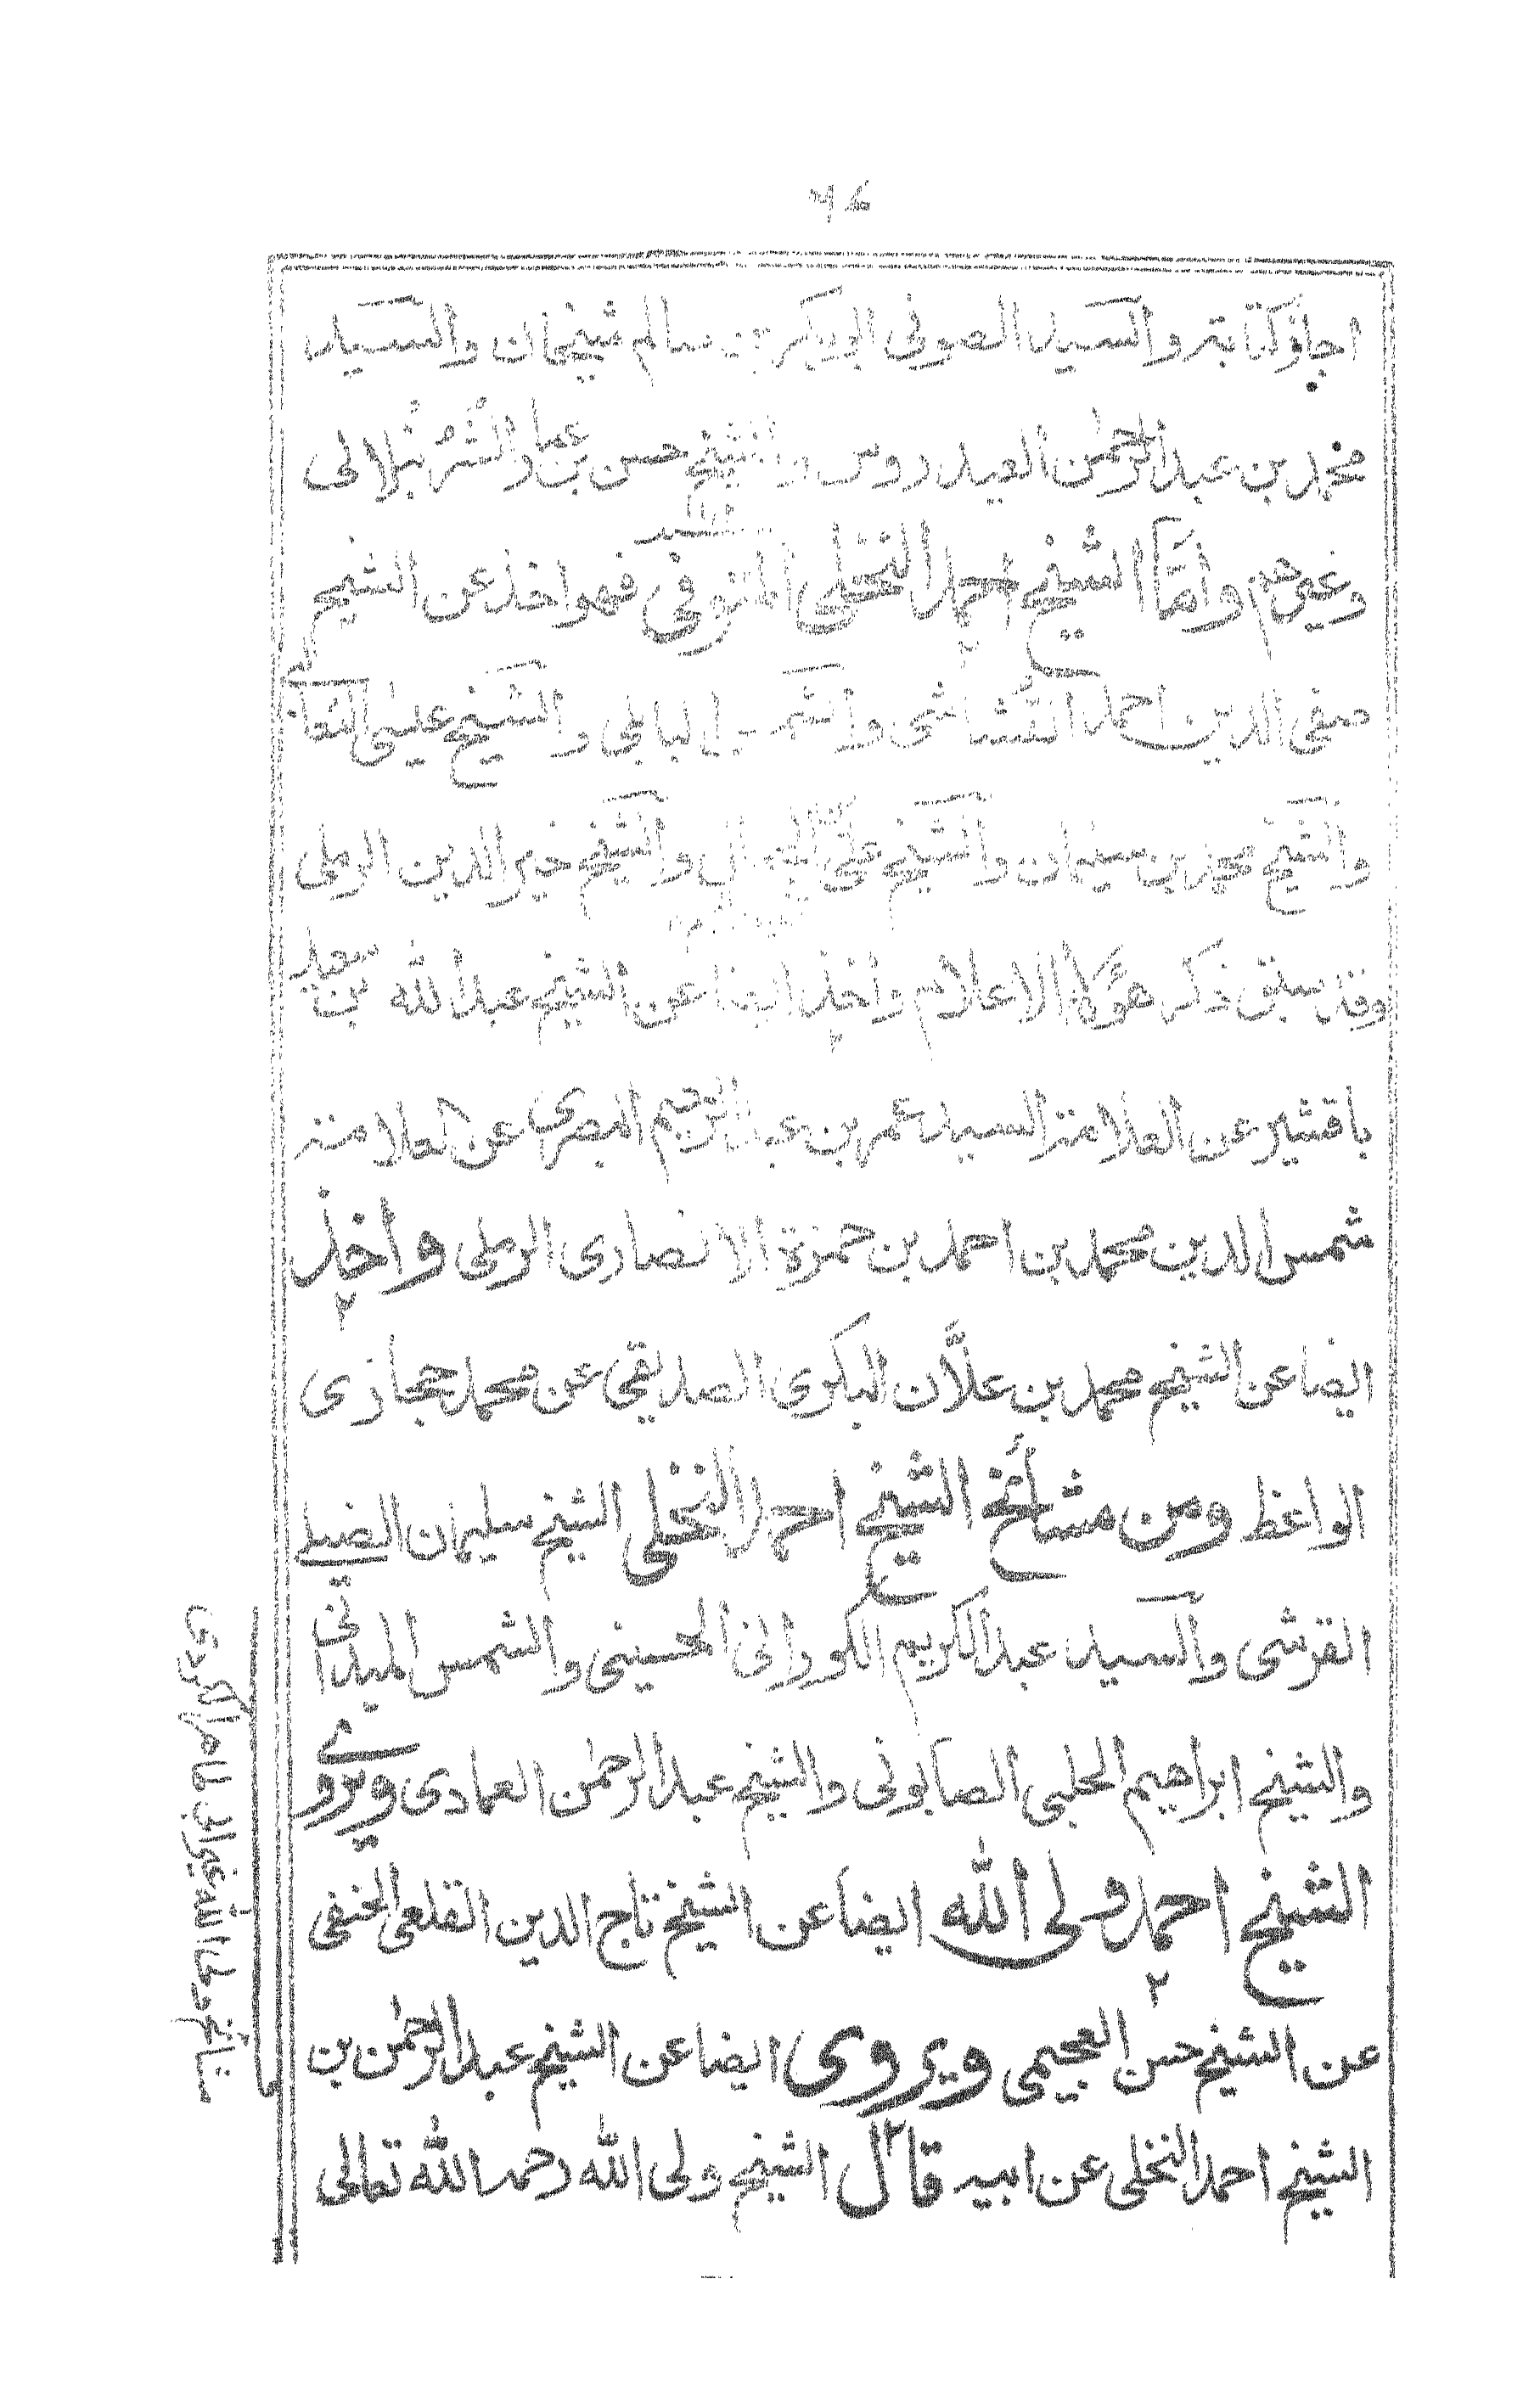 اجازة كتابة والسيد الصوفى ابو بكر بن سالم شيخان والسيد
محمد بن عبد الرحمن العيدروس والشيخ حسن بن عمار الشرنبلالى
وغيرهم واما الشيخ احمد النخلى المتوفى فهو اخذ عن الشيخ
صفى الدين احمد القشاشى والشمس البابلى والشيخ عيسى الثعالبى
والشيخ محمد بن سليمان والشيخ على الجمال والشيخ خير الدين الرملى
وقد سبق ذكر هؤلاء الاعلام واخذ ايضا عن الشيخ عبد الله بن سعيد
باقشير عن العلامة السيد عمر بن عبد الرحيم البصرى عن العلامة
شمس الدين محمد بن احمد بن حمزة الانصارى الرملى واخذ
ايضا عن الشيخ محمد بن علَّان البكرى الصديقى عن محمد حجازى
الواعظ ومن مشائخ الشيخ احمد النخلى الشيخ سليمان الضيلى
القرشى والسيد عبد الكريم الكورانى الحسينى والشمس الميدانى
والشيخ ابراهيم الحلبى الصابونى والشيخ عبد الرحمن العمادى ويروى
الشيخ احمد ولى الله ايضا عن الشيخ تاج الدين القلعى الحنفى
عن الشيخ حسن العجيمى ويروى ايضا عن الشيخ عبد الرحمن بن
الشيخ احمد النخلى عن ابيه قال الشيخ ولى الله رحمه الله تعالى